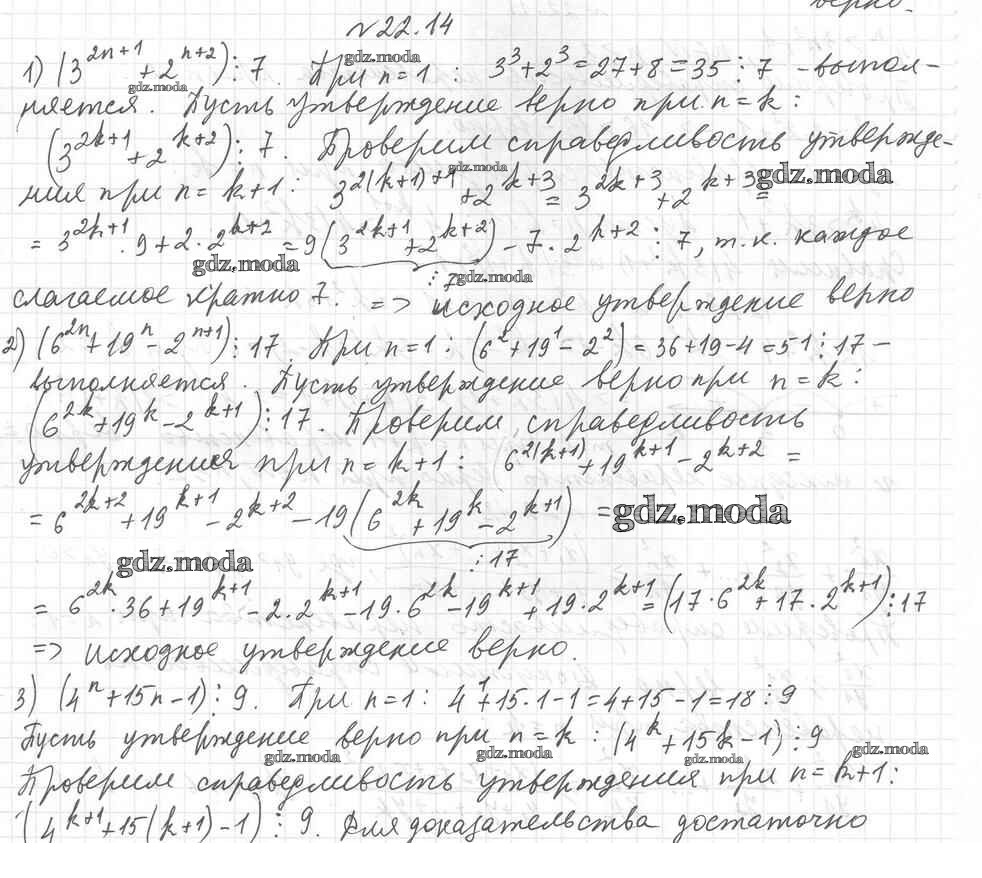 верно.
№22.14
1) (3^{2n+1} + 2^{n+2}) ⋮ 7. При n=1 : 3^3+2^3=27+8=35 ⋮ 7 - выпол-
няется. Пусть утверждение верно при n=k:
(3^{2k+1} + 2^{k+2}) ⋮ 7. Проверим справедливость утвержде-
ния при n=k+1: 3^{2(k+1)+1} + 2^{k+3} = 3^{2k+3} + 2^{k+3} =
= 3^{2k+1} · 9 + 2 · 2^{k+2} = 9(3^{2k+1} + 2^{k+2}) - 7 · 2^{k+2} ⋮ 7, т.к. каждое
⋮ 7
слагаемое кратно 7. => исходное утверждение верно
2) (6^{2n} + 19^n - 2^{n+1}) ⋮ 17. При n=1: (6^2+19^1-2^2) = 36+19-4=51 ⋮ 17 -
выполняется. Пусть утверждение верно при n=k:
(6^{2k} + 19^k - 2^{k+1}) ⋮ 17. Проверим справедливость
утверждения при n=k+1: (6^{2(k+1)} + 19^{k+1} - 2^{k+2} =
= 6^{2k+2} + 19^{k+1} - 2^{k+2} - 19(6^{2k} + 19^k - 2^{k+1}) =
⋮ 17
= 6^{2k} · 36 + 19^{k+1} - 2 · 2^{k+1} - 19 · 6^{2k} - 19^{k+1} + 19 · 2^{k+1} = (17 · 6^{2k} + 17 · 2^{k+1}) ⋮ 17
=> исходное утверждение верно.
3) (4^n + 15n - 1) ⋮ 9. При n=1: 4^1+15·1-1=4+15-1=18 ⋮ 9
Пусть утверждение верно при n=k : (4^k + 15k - 1) ⋮ 9
Проверим справедливость утверждения при n=k+1:
(4^{k+1} + 15(k+1) - 1) ⋮ 9. Для доказательства достаточно
gdz.moda
gdz.moda
gdz.moda
gdz.moda
gdz.moda
gdz.moda
gdz.moda
gdz.moda
gdz.moda
gdz.moda
gdz.moda
gdz.moda